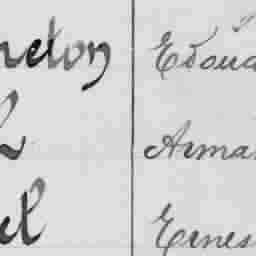 neton Edoua
L Arma
el Ernes